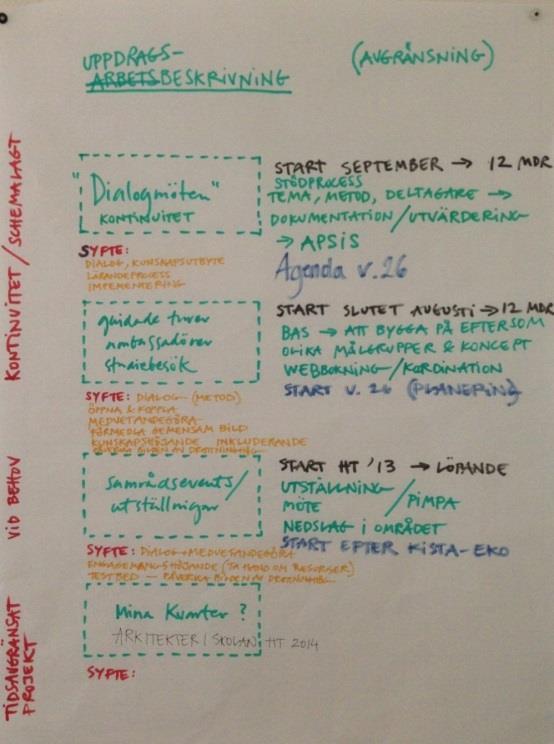 UPPDRAGS-
ARBETSBESKRIVNING
(AVGRÄNSNING)
KONTINUITET / SCHEMALAGT
"Dialogmöten"
KONTINUITET
START SEPTEMBER → 12 MDR
STÖDPROCESS
TEMA, METOD, DELTAGARE →
DOKUMENTATION/UTVÄRDERING
→ APSIS
Agenda v.26
SYFTE:
DIALOG, KUNSKAPSUTBYTE
LÄRANDEPROCESS
IMPEMENTERING
guidade turer
ambassadörer
studiebesök
START SLUTET AUGUSTI → 12 MDR
BAS → ATT BYGGA PÅ EFTERSOM
OLIKA MÅLGRUPPER & KONCEPT
WEBBOKNING/KORDINATION
START V. 26 (PLANERING)
SYFTE: DIALOG (METOD)
ÖPPNA & KOPPLA
MEDVETANDEGÖRA
FÖRMEDLA GEMENSAM BILD
KUNSKAPSHÖJANDE INKLUDERANDE
PÅVERKA BILDEN AV
VID BEHOV
samrådsevents/
utställningar
START HT '13 → LÖPANDE
UTSTÄLLNING
MÖTE / PIMPA
NEDSLAG I OMRÅDET
START EFTER KISTA-EKO
SYFTE: DIALOG+MEDVETANDEGÖRA
ENGAGEMANGSHÖJANDE (TA HAND OM RESURSER)
TESTBED — PÅVERKA BILDEN AV
TIDSAVGRÄNSAT
PROJEKT
Mina Kvarter?
ARKITEKTER I SKOLAN, HT 2014
SYFTE: